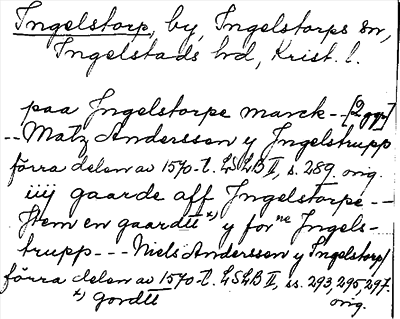 Ingelstorp, by, Ingelstorps sn,
Ingelstads hd, Krist. l.
paa Jngelstorpe marck -- [2 ggr]
-- Matz Anderssen y Jngelstrupp
förra delen av 1570-t. LSLB II, s. 289 orig.
iiij gaarde aff Jngelstorpe --
Jtem en gaardtt x) y for ne Jngels-
trupp --- Niels Anderssen y Jngelstorp/
förra delen av 1570-t. LSLB II, ss. 293, 295, 297.
x) gordtt orig.